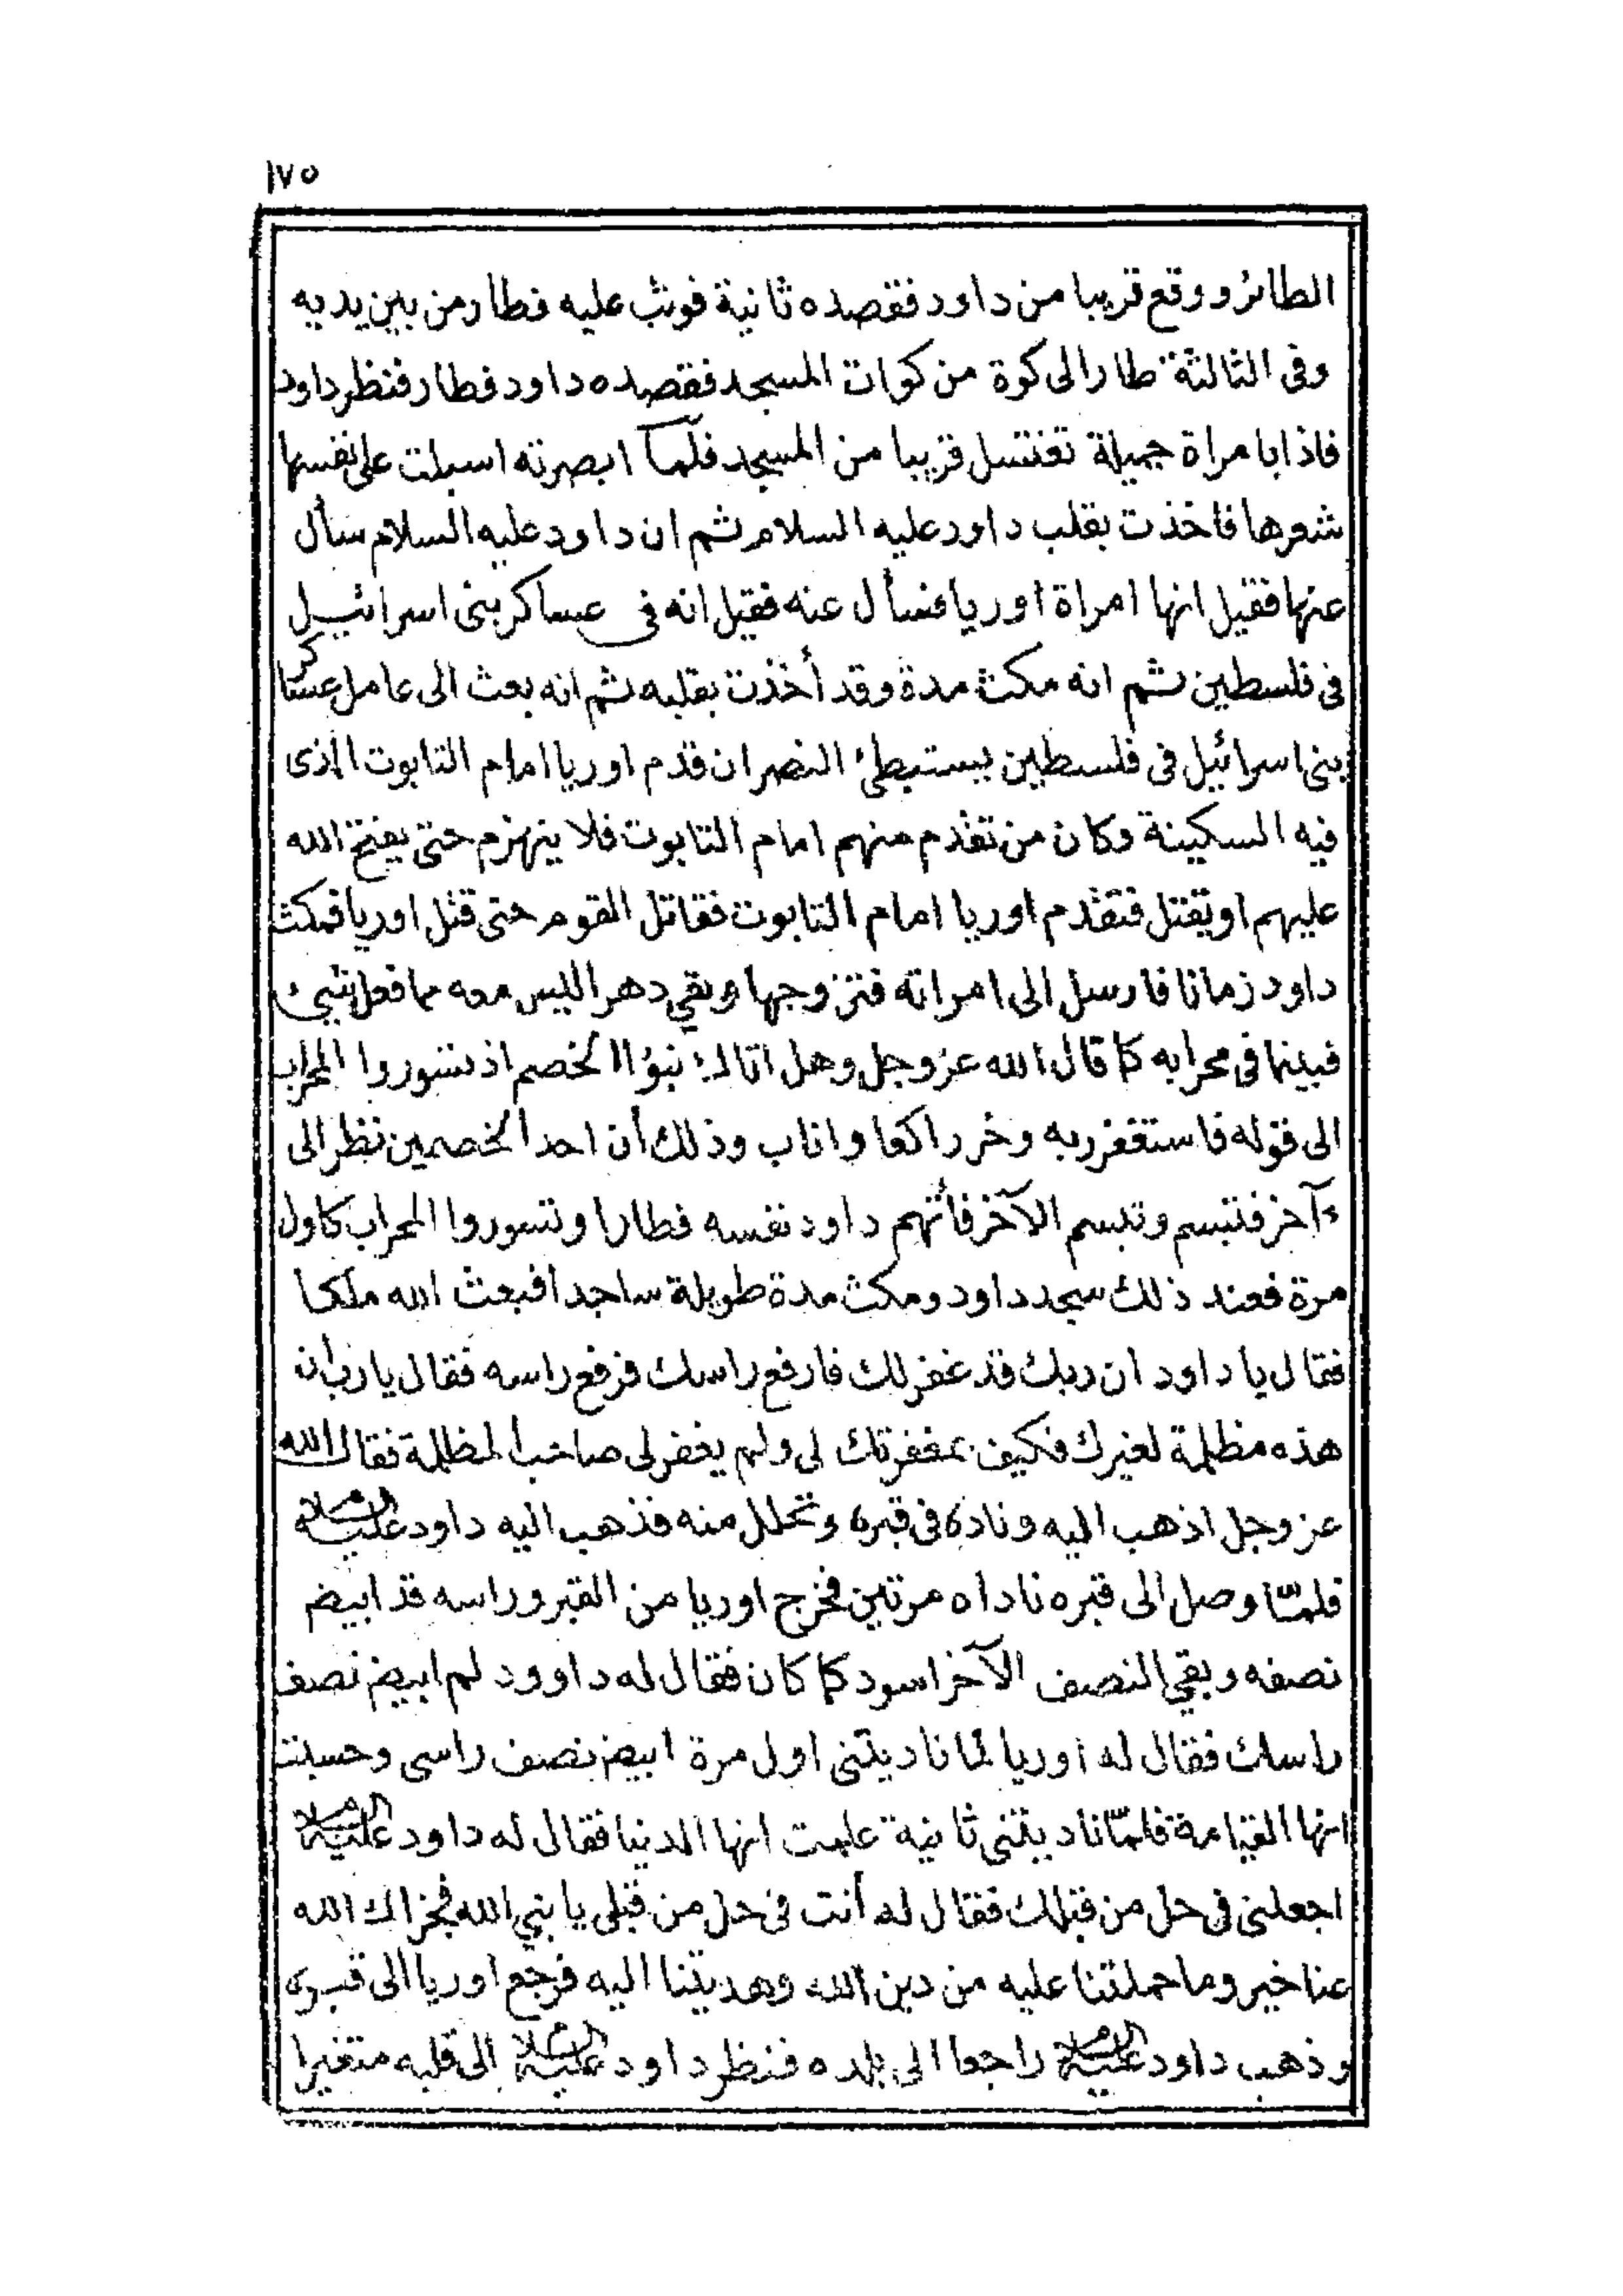 ١٧٥
الطائر ووقع قريبا من داود فقصده ثانية فوثب عليه فطار من بين يديه
وفى الثالثة طار الى كوة من كوات المسجد فقصده داود فطار فنظر داود
فاذا بامراة جميلة تغتسل قريبا من المسجد فلمّا ابصرته اسبلت على نفسها
شعرها فاخذت بقلب داود عليه السلام ثم ان داود عليه السلام سأل
عنها فقيل انها امراة اوريا فسأل عنه فقيل انه فى عساكر بنى اسرائيل
فى فلسطين ثم انه مكث مدة وقد أخذت بقلبه ثم انه بعث الى عامل عساكر
بنى اسرائيل فى فلسطين يستبطئ النصر ان قدم اوريا امام التابوت الذى
فيه السكينة وكان من تقدم منهم امام التابوت فلا ينهزم حتى يفتح الله
عليهم او يقتل فتقدم اوريا امام التابوت فقاتل القوم حتى قتل اوريا فمكث
داود زمانا فارسل الى امراته فتزوجها وبقي دهرا ليس معه مما فعل شيء
فبينما فى محرابه كما قال الله عز وجل وهل اتاك نبؤا الخصم اذ تسوروا المحراب
الى قوله فاستغفر ربه وخر راكعا واناب وذلك أن احد الخصمين نظر الى
ءآخر فتبسم وتبسم الآخر فأتهم داود نفسه فطارا وتسوروا المحراب كاول
مرة فعند ذلك سجد داود ومكث مدة طويلة ساجدا فبعث الله ملكا
فقال يا داود ان ربك قد غفر لك فارفع راسك فرفع راسه فقال يا رب ان
هذه مظلمة لغيرك فكيف بمغفرتك لى ولم يغفر لى صاحب المظلمة فقال الله
عز وجل اذهب اليه وناده فى قبره وتحلل منه فذهب اليه داود عليه السلام
فلمّا وصل الى قبره ناداه مرتين فخرج اوريا من القبر وراسه قد ابيض
نصفه وبقي النصف الآخر اسود كما كان فقال له داوود لم ابيض نصف
راسك فقال له اوريا لما ناديتنى اول مرة ابيض نصف راسى وحسبت
انها القيامة فلمّا ناديتنى ثانية علمت انها الدنيا فقال له داود عليه السلام
اجعلنى فى حل من قتلك فقال له أنت فى حل من قتلى يا نبي الله فجزاك الله
عنا خير وما حملتنا عليه من دين الله وهديتنا اليه فرجع اوريا الى قبره
وذهب داود عليه السلام راجعا الى بلده فنظر داود عليه السلام الى قلبه متغيرا